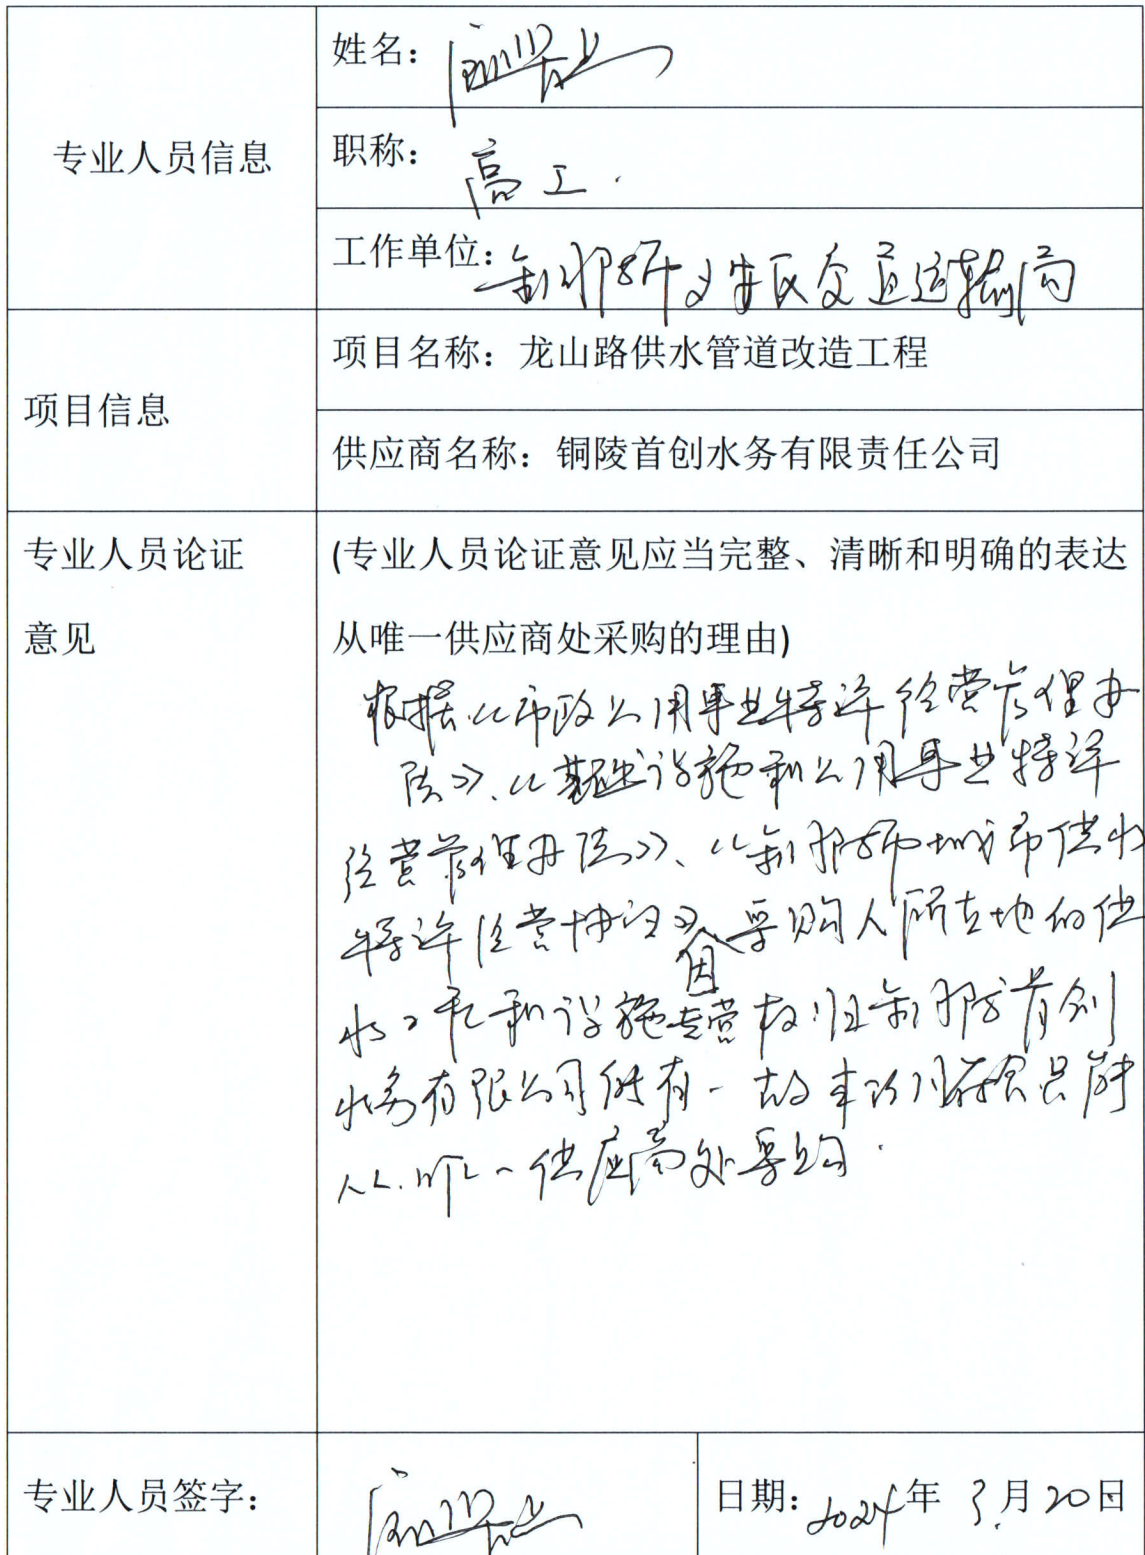 专业人员信息
姓名：
职称：高工.
工作单位：铜陵市义安区交通运输局
项目信息
项目名称：龙山路供水管道改造工程
供应商名称：铜陵首创水务有限责任公司
专业人员论证
意见
(专业人员论证意见应当完整、清晰和明确的表达
从唯一供应商处采购的理由)
根据《市政公用事业特许经营管理办
法》、《基础设施和公用事业特许
经营管理办法》、《铜陵市城市供水
特许经营协议》因采购人所在地的供
水 和设施专营权归铜陵首创
水务有限公司所有 故 只能
从唯一供应商处采购.
专业人员签字：
日期：2024年3月20日